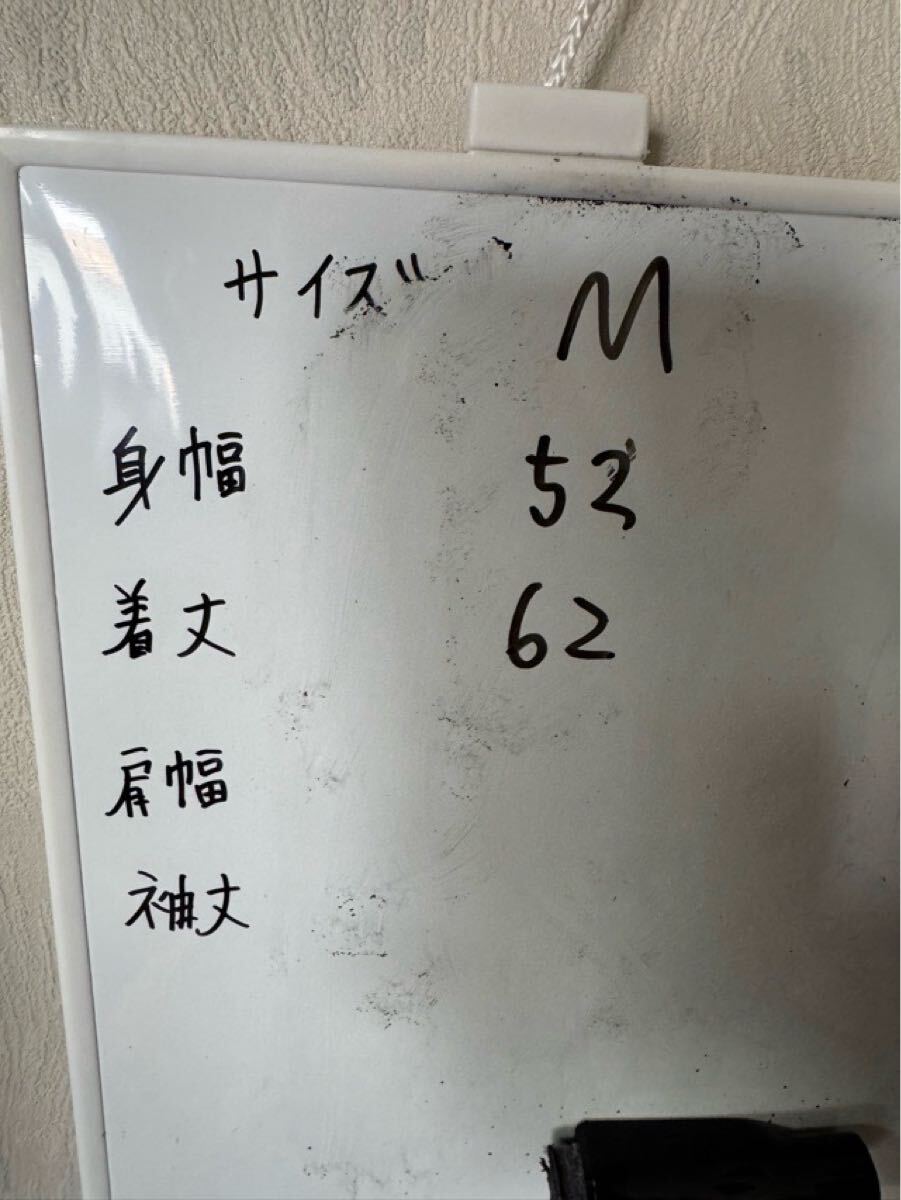 サイズ M
身幅 52
着丈 62
肩幅
袖丈